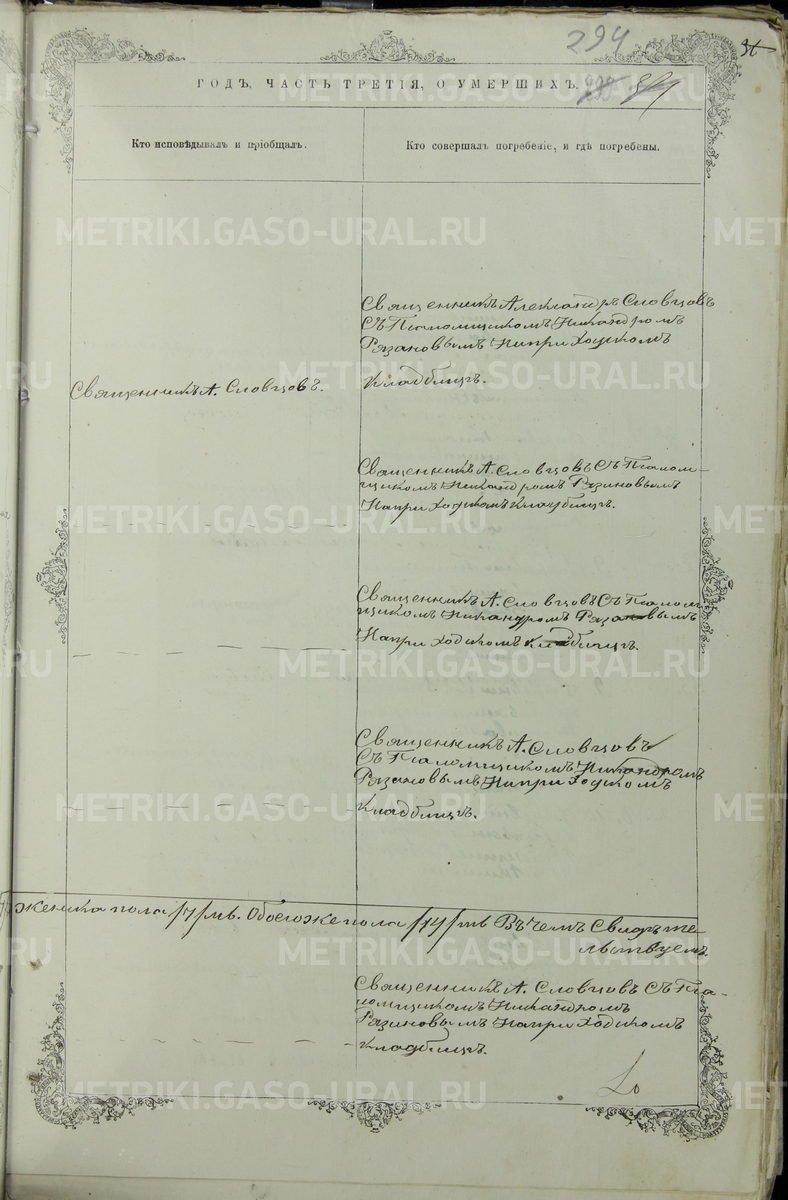 294
ГОДЪ, ЧАСТЬ ТРЕТІЯ, О УМЕРШИХЪ,
Кто исповѣдывалъ и пріобщалъ.
Кто совершалъ погребеніе, и гдѣ погребены.
Священникъ Александръ Словцовъ
Съ Псаломщикомъ Никандромъ
Рязановымъ На приходскомъ
Кладбищъ.
Священникъ А. Словцовъ.
Священникъ А. Словцовъ Съ Псалом-
щикомъ Никандромъ Рязановымъ
На приходскомъ Кладбищъ.
Священникъ А. Словцовъ Съ Псалом-
щикомъ Никандромъ Рязановымъ
На приходскомъ Кладбищъ.
Священникъ А. Словцовъ
Съ Псаломщикомъ Никандромъ
Рязановымъ На приходскомъ
Кладбищъ.
женска пола /7/ мь. Обоего же пола /14/ ть Въ чемъ Свидѣте-
льствуемъ.
Священникъ А. Словцовъ Съ Пса-
ломщикомъ Никандромъ
Рязановымъ На приходскомъ
Кладбищъ.
METRIKI.GASO-URAL.RU